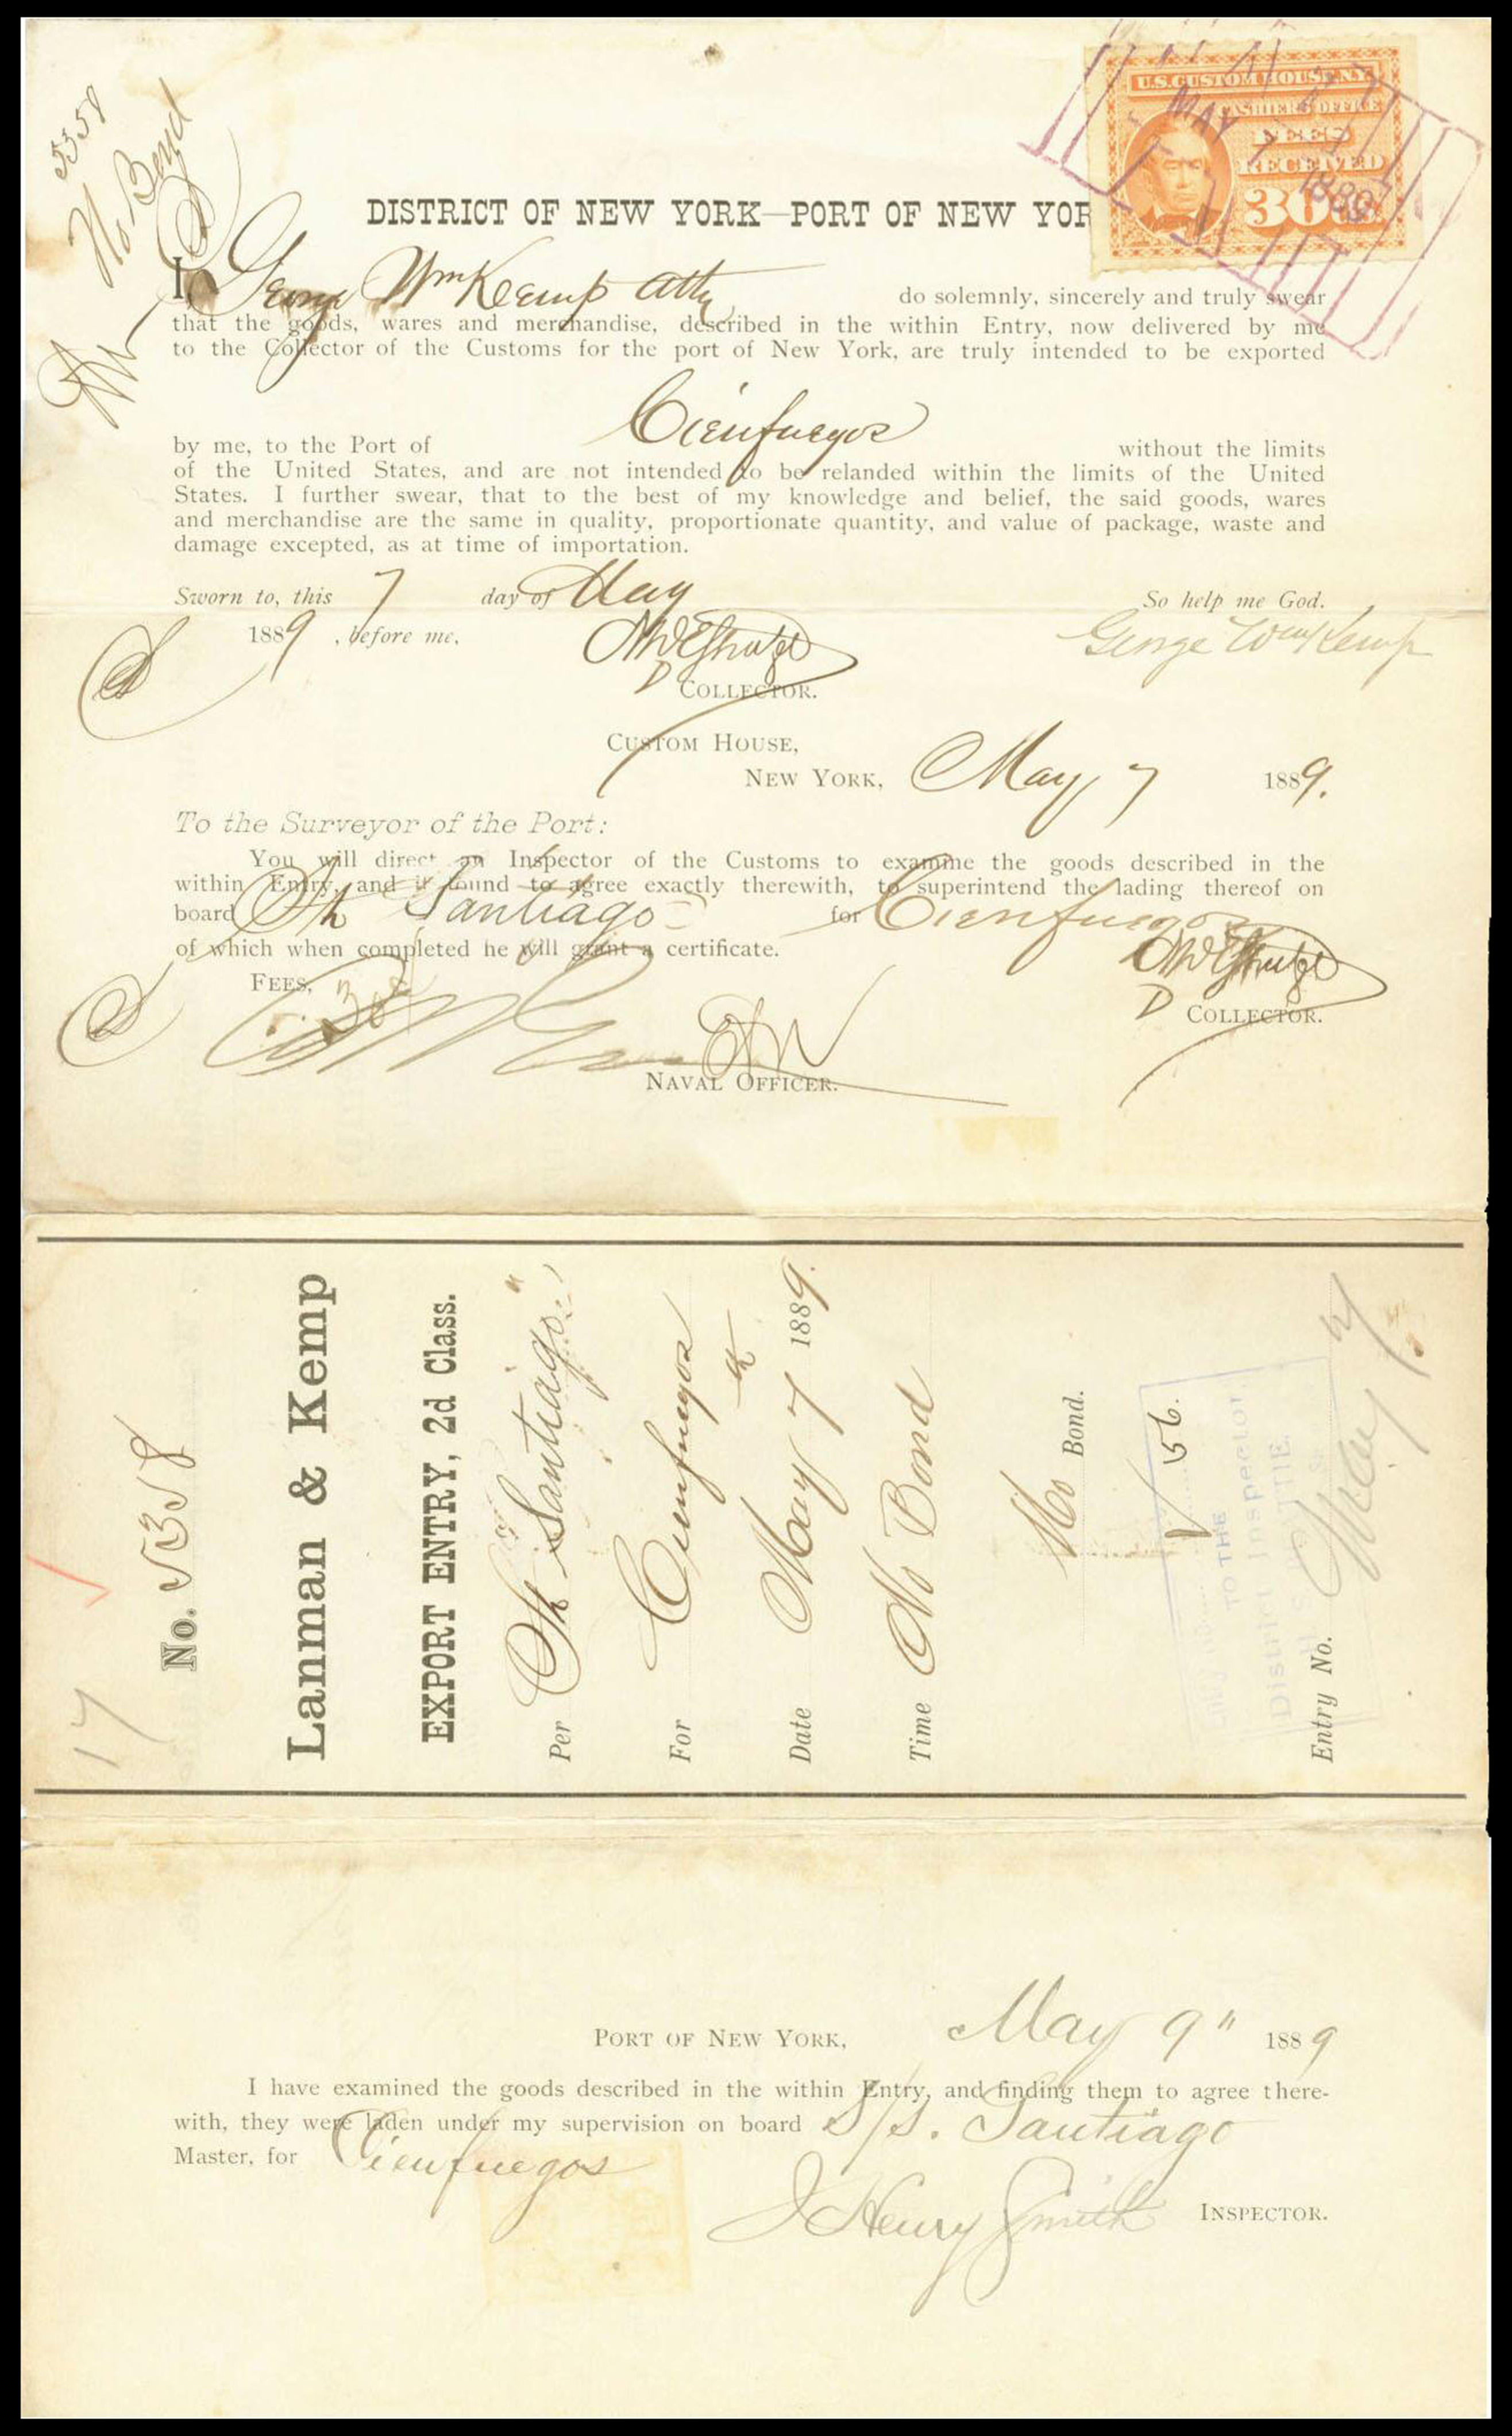 5358
No Bond
U.S. CUSTOM HOUSE N.Y.
CASHIER'S OFFICE
FEES
RECEIVED
30
MAY 7
1889
DISTRICT OF NEW YORK—PORT OF NEW YOR
I, George Wm Kemp atty do solemnly, sincerely and truly swear
that the goods, wares and merchandise, described in the within Entry, now delivered by me
to the Collector of the Customs for the port of New York, are truly intended to be exported
by me, to the Port of Cienfuegos without the limits
of the United States, and are not intended to be relanded within the limits of the United
States. I further swear, that to the best of my knowledge and belief, the said goods, wares
and merchandise are the same in quality, proportionate quantity, and value of package, waste and
damage excepted, as at time of importation.
Sworn to, this 7 day of May So help me God.
1889, before me, George Wm Kemp
D COLLECTOR.
CUSTOM HOUSE,
NEW YORK, May 7 1889.
To the Surveyor of the Port:
You will direct an Inspector of the Customs to examine the goods described in the
within Entry, and if found to agree exactly therewith, to superintend the lading thereof on
board Str Santiago for Cienfuegos
of which when completed he will grant a certificate.
FEES,
D COLLECTOR.
NAVAL OFFICER.
17
No. 5358
Lanman & Kemp
EXPORT ENTRY, 2d Class.
Per Str "Santiago"
For Cienfuegos
Date May 7th 1889.
Time No Bond
No Bond.
156.
TO THE
District Inspector
Entry No. May 7
PORT OF NEW YORK, May 9" 1889
I have examined the goods described in the within Entry, and finding them to agree there-
with, they were laden under my supervision on board S/S. Santiago
Master, for Cienfuegos
J Henry Smith INSPECTOR.